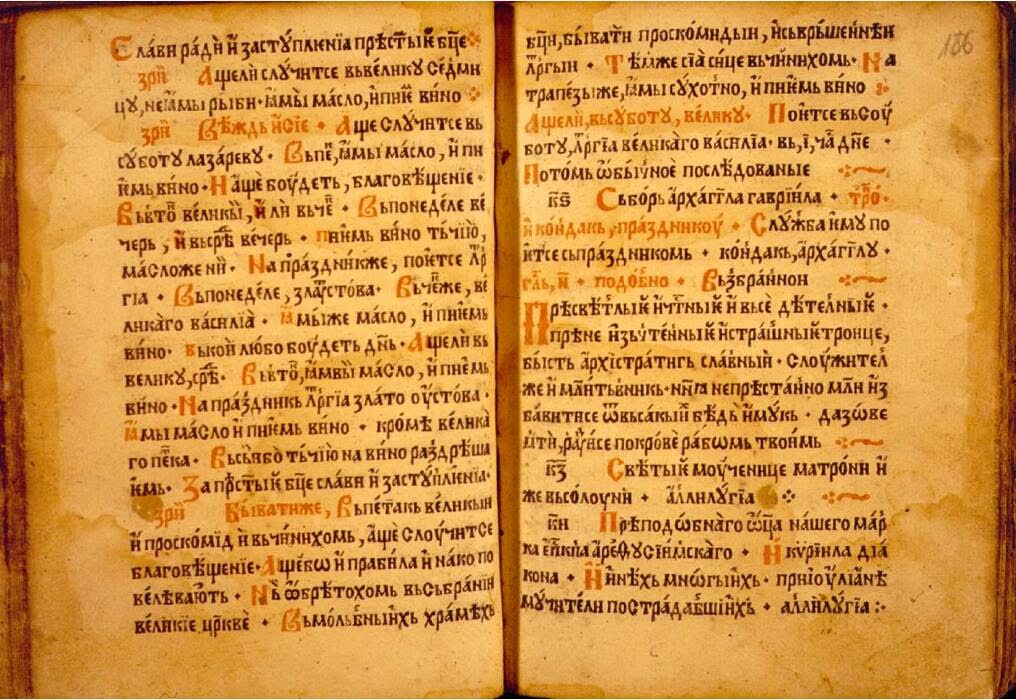 Слави ради и҆ застꙋпленїа прⷭ҇тыи бц҃е
зри А҆щели слꙋчитсе вьвеликꙋ седми
цꙋ, не ꙗ҆мы рыби · ꙗ҆мы масло, и҆ пїемь вино
зри Вѣждь и҆ сїе · А҆ще слꙋчитсе вь
сꙋботꙋ лазаревꙋ · Вьпеⷮ, ꙗ҆мы масло, и҆ пи
їемь вино · На а҆ще боудеть, благовѣщенїе ·
Вьвтоⷬ҇ великы, и҆ли вьчеⷮ · Вьпонеделе ве
черь, и҆ вьсрⷣѣ вечерь · пїемь вино тьчїю,
масложе ни · На праздникже, поѥтсе лⷮрг
гїа · Вьпонеделе, златⷭ҇това · Вьчеⷮже, ве
ликаго василїа · ꙗ҆мыже масло, и҆ пїемь
вино · вькои любо боудеть дн҃ь · А҆щели вь
великꙋ, срⷣѣ · Вьвтоⷬ҇, ꙗ҆мы масло, и҆ пїемь
вино · На праздникь лⷮргїа злато оустова ·
ꙗ҆мы масло и҆ пїемь вино · кромѣ велика
го пеⷮка · Вьсьбо тьчїю на вино раздрѣша
їемь · За прⷭ҇тыи бц҃е слави и҆ застꙋпленїа ·
зри Быватиже, Вьпетакь великыи
и҆ проскомїд и҆ вьчинихомь, а҆ще слоучитсе
благовѣщенїе · А҆щебѡ и҆ правила и҆ нако по
велѣвають · Нь ѡ҆брѣтохомь вьсьбранїи
великїе цр҃кве · Вьмольбныихь храмѣхь
бц҃и, бывати проскомидыи, и҆ сьврьшениѣи
лⷮргыи · Тѣмже сїа сице вьчинихомь · На
трапезыже, ꙗ҆мы сꙋхотно, и҆ пїемь вино
А҆щели, вьсꙋботꙋ, великꙋ · Поѥтсе вьсоу
ботꙋ, лⷮргїа великаго василїа · вь, і҃, ча дн҃е
Потомь ѡ҆бычное последованые
к҃ѕ Сьборь а҆рхаггⷧ҇ла гаврїила · тро ·
и҆ кондакь, праздникоу · Слꙋжба ѥ҆мꙋ по
ѥтсе сьпраздникомь · кондакь, а҆рхагглꙋ ·
гла҃, и҃ · подобно · Вьзбранной
Прѣсвѣтлый и҆ чтⷭ҇ный и҆ вьсе дѣтелный ·
и҆ прѣне и҆зьчтенный и҆ страшный троице,
бысть а҆рхїстратигь славный · слоужител
же и҆ млⷮитьвникь · нн҃ꙗ непрѣстанно мли и҆з
бавитисе ѿвьсакыⷯ бѣдь и҆ мꙋкь · дазове
мти, раⷣуисе покрове рабѡмь твоимь
к҃з Свѣтыѥ моученице матрони и҆
же вьсолоуни · а҆ллилꙋгїа
к҃и Прѣподѡбнаго ѡ҆ца нашего мар
ка еⷫ҇пкпа а҆реѳꙋсїимскаго · И҆ кꙋриїла дїа
кона · И҆ и҆нѣхь мнѡгыихь · при їоулїанѣ
мꙋчители пострадавшїихь · а҆ллилꙋгїа :·
186